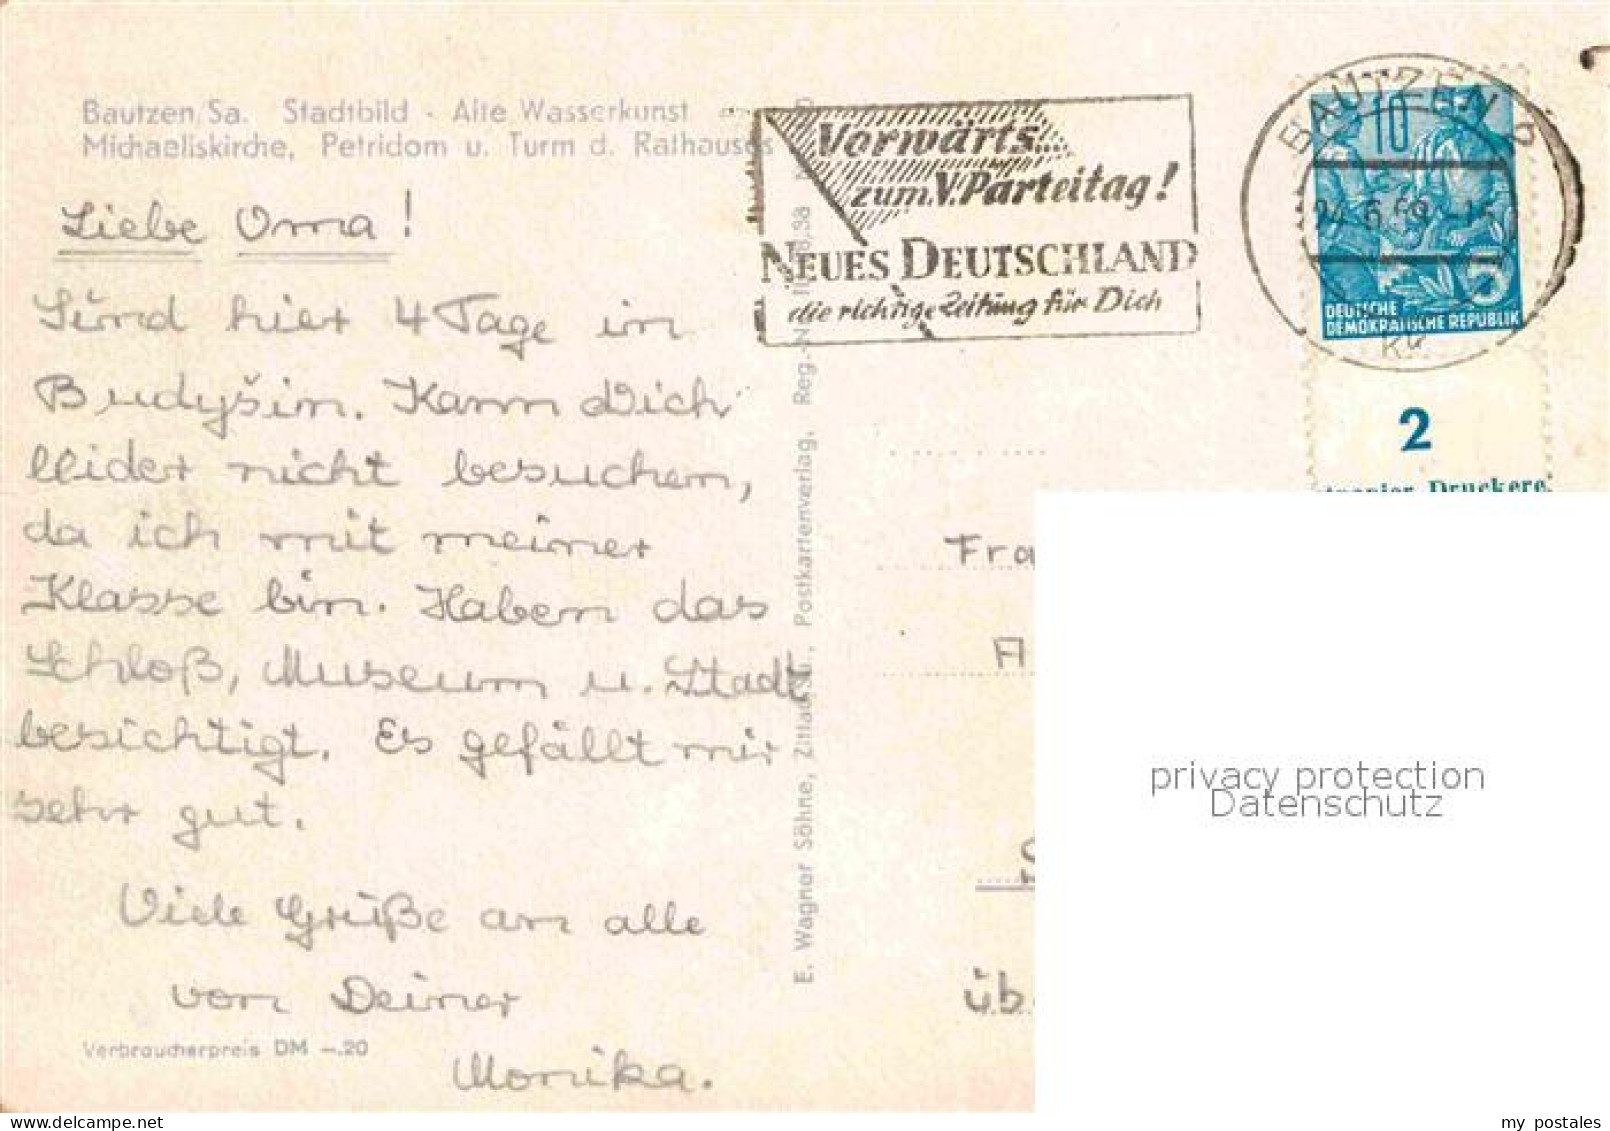 Bautzen/Sa. Stadtbild - Alte Wasserkunst
Michaeliskirche, Petridom u. Turm d. Rathauses
Liebe Oma!
Sind hier 4 Tage in
Budyšin. Kann Dich
lleider nicht besuchen,
da ich mit meiner
Klasse bin. Haben das
Schloß, Museum u. Stadt
besichtigt. Es gefällt mir
sehr gut.
Viele Grüße an alle
von Deiner
Monika.
Verbraucherpreis DM -.20
E. Wagner Söhne, Zittau/Sa., Postkartenverlag, Reg.-Nr.
Vorwärts...
zum V. Parteitag!
NEUES DEUTSCHLAND
die richtige Zeitung für Dich
BAUTZEN 2
10
5
DEUTSCHE
DEMOKRATISCHE REPUBLIK
2
Druckere
Fra
A
üb
privacy protection
Datenschutz
my postales